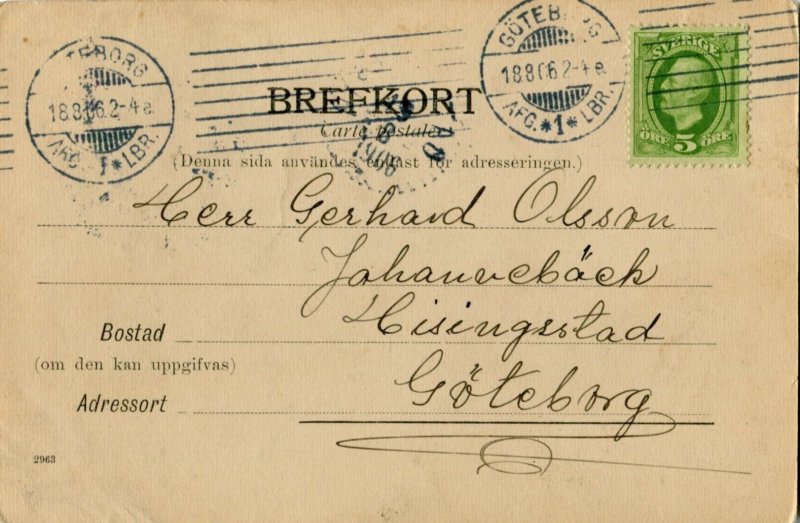 GÖTEBORG
18 8 06 2-4 e.
AFG. *1* LBR.
GÖTEBORG 1
18 8 06 2-4 e.
AFG. *1* LBR.
SVERIGE
ÖRE 5 ÖRE
BREFKORT
Carte postale
1906
(Denna sida användes endast för adresseringen.)
Herr Gerhard Olsson
Johannebäck
Hisingsstad
Bostad
(om den kan uppgifvas)
Göteborg
Adressort
2963